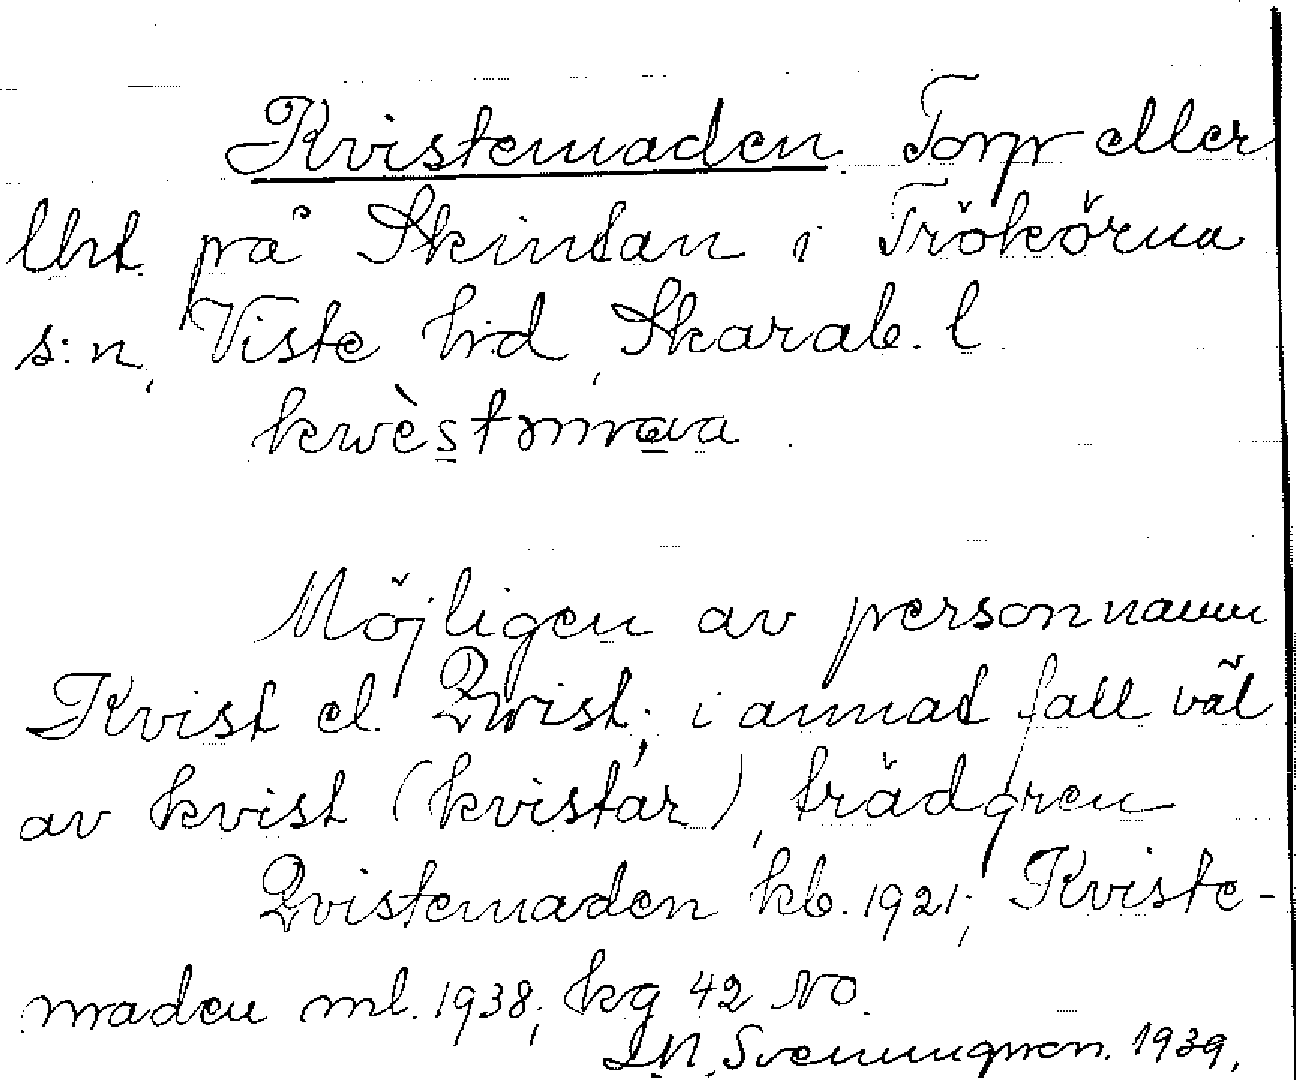 Kvistemaden. Torp eller
lht. på Skintan i Trökörna
s:n, Viste hd, Skarab. l.
kwèstmava.
Möjligen av personnamn
Kvist el. Qvist; i annat fall väl
av kvist (kvistar), trädgren
Qvistemaden kb. 1921; Kviste-
maden ml. 1938; kg 42 NO.
Svenungson. 1939.